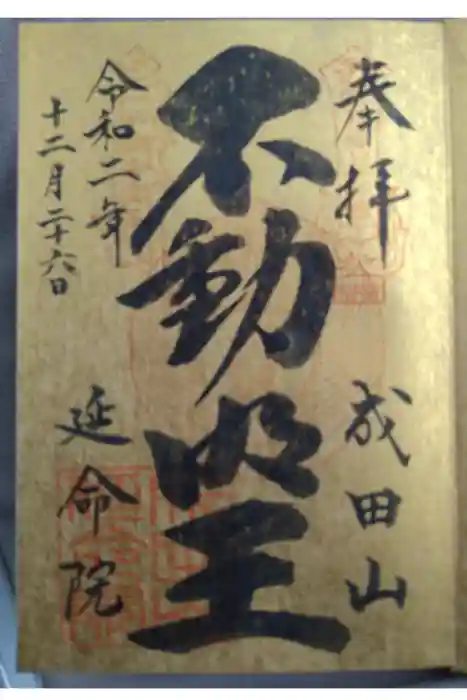 奉拝 成田山
不動明王
令和二年
十二月二十六日
延命院